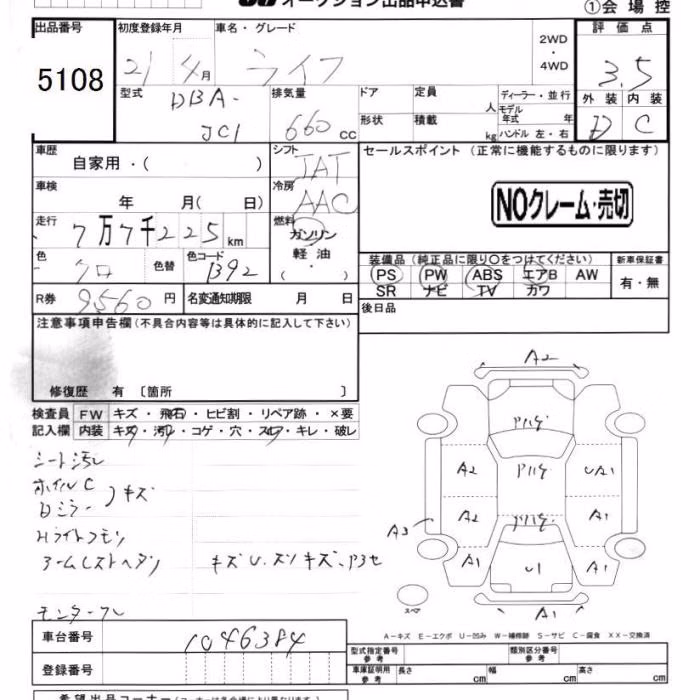 オークション出品申込書
①会場控
出品番号
5108
初度登録年月
車名・グレード
2WD
・
4WD
評価点
21 4月
ライフ
3.5
型式
DBA-
JC1
排気量
660 cc
ドア
定員
人
ディーラー・並行
形状
積載
kg
モデル
年式 年
ハンドル 左・右
外装 内装
D C
車歴
自家用・( )
シフト
IAT
セールスポイント (正常に機能するものに限ります)
車検
年 月( 日)
冷房
AAC
NOクレーム・売切
走行
7万7千225km
燃料
ガソリン
軽油
( ・ )
色
クロ
色替
色コード
B92
装備品(純正品に限り〇をつけてください)
新車保証書
PS PW ABS エアB AW
SR ナビ TV カワ
有・無
R券 9560円
名変通知期限 月 日
後日品
注意事項申告欄(不具合内容等は具体的に記入して下さい)
修復歴 有 〔箇所 〕
検査員
記入欄
FW キズ・飛石・ヒビ割・リペア跡・×要
内装 キズ・汚れ・コゲ・穴・スレ・キレ・破レ
シート汚レ
ホイルC
Bミラー
キズ
Hライトクモリ
キズU.スリキズ、
A2
A2
A2
A1
A3
UA1
A1
A1
U1
A1
スペア
A-キズ E-エクボ U-凹み W-補修跡 S-サビ C-腐食 XX-交換済
車台番号
1046384
登録番号
型式指定番号
参考
類別区分番号
参考
車庫証明用
参考
長さ cm
幅 cm
高さ cm
希望出品コーナー